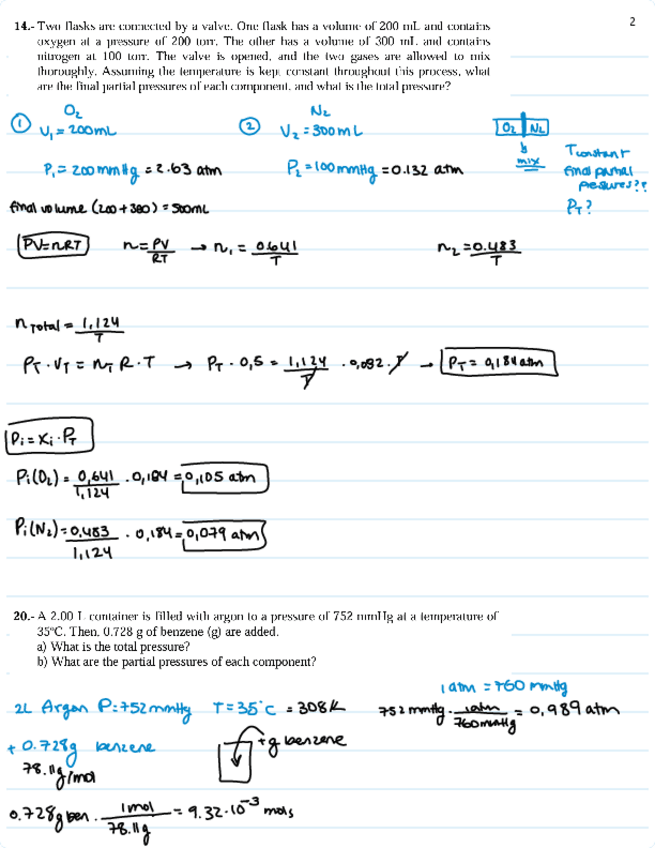 2
14.- Two flasks are connected by a valve. One flask has a volume of 200 mL and contains
oxygen at a pressure of 200 torr. The other has a volume of 300 mL and contains
nitrogen at 100 torr. The valve is opened, and the two gases are allowed to mix
thoroughly. Assuming the temperature is kept constant throughout this process, what
are the final partial pressures of each component, and what is the total pressure?
① O₂ ② N₂
V₁ = 200mL V₂ = 300mL
O₂ N₂
mix
P₁ = 200mmHg = 2.63 atm P₂ = 100mmHg = 0.132 atm
T constant
final partial
pressures??
P_T?
final volume (200+300) = 500mL
PV=nRT n = PV/RT → n₁ = 0.641/T n₂ = 0.483/T
n total = 1,124/T
P_T · V_T = n_T R · T → P_T · 0,5 = 1,124/T · 0,082 · T → P_T = 0,184 atm
Pi = Xi · P_T
Pi(O₂) = 0,641/1,124 · 0,184 = 0,105 atm
Pi(N₂) = 0,483/1,124 · 0,184 = 0,079 atm
20.- A 2.00 L container is filled with argon to a pressure of 752 mmHg at a temperature of
35°C. Then, 0.728 g of benzene (g) are added.
a) What is the total pressure?
b) What are the partial pressures of each component?
1 atm = 760 mmHg
2L Argon P: 752mmHg T = 35°C = 308K 752 mmHg · 1atm/760mmHg = 0,989 atm
+ 0.728g benzene
+g benzene
78.11g/mol
0.728g ben · 1mol/78.11g = 9.32·10⁻³ mols